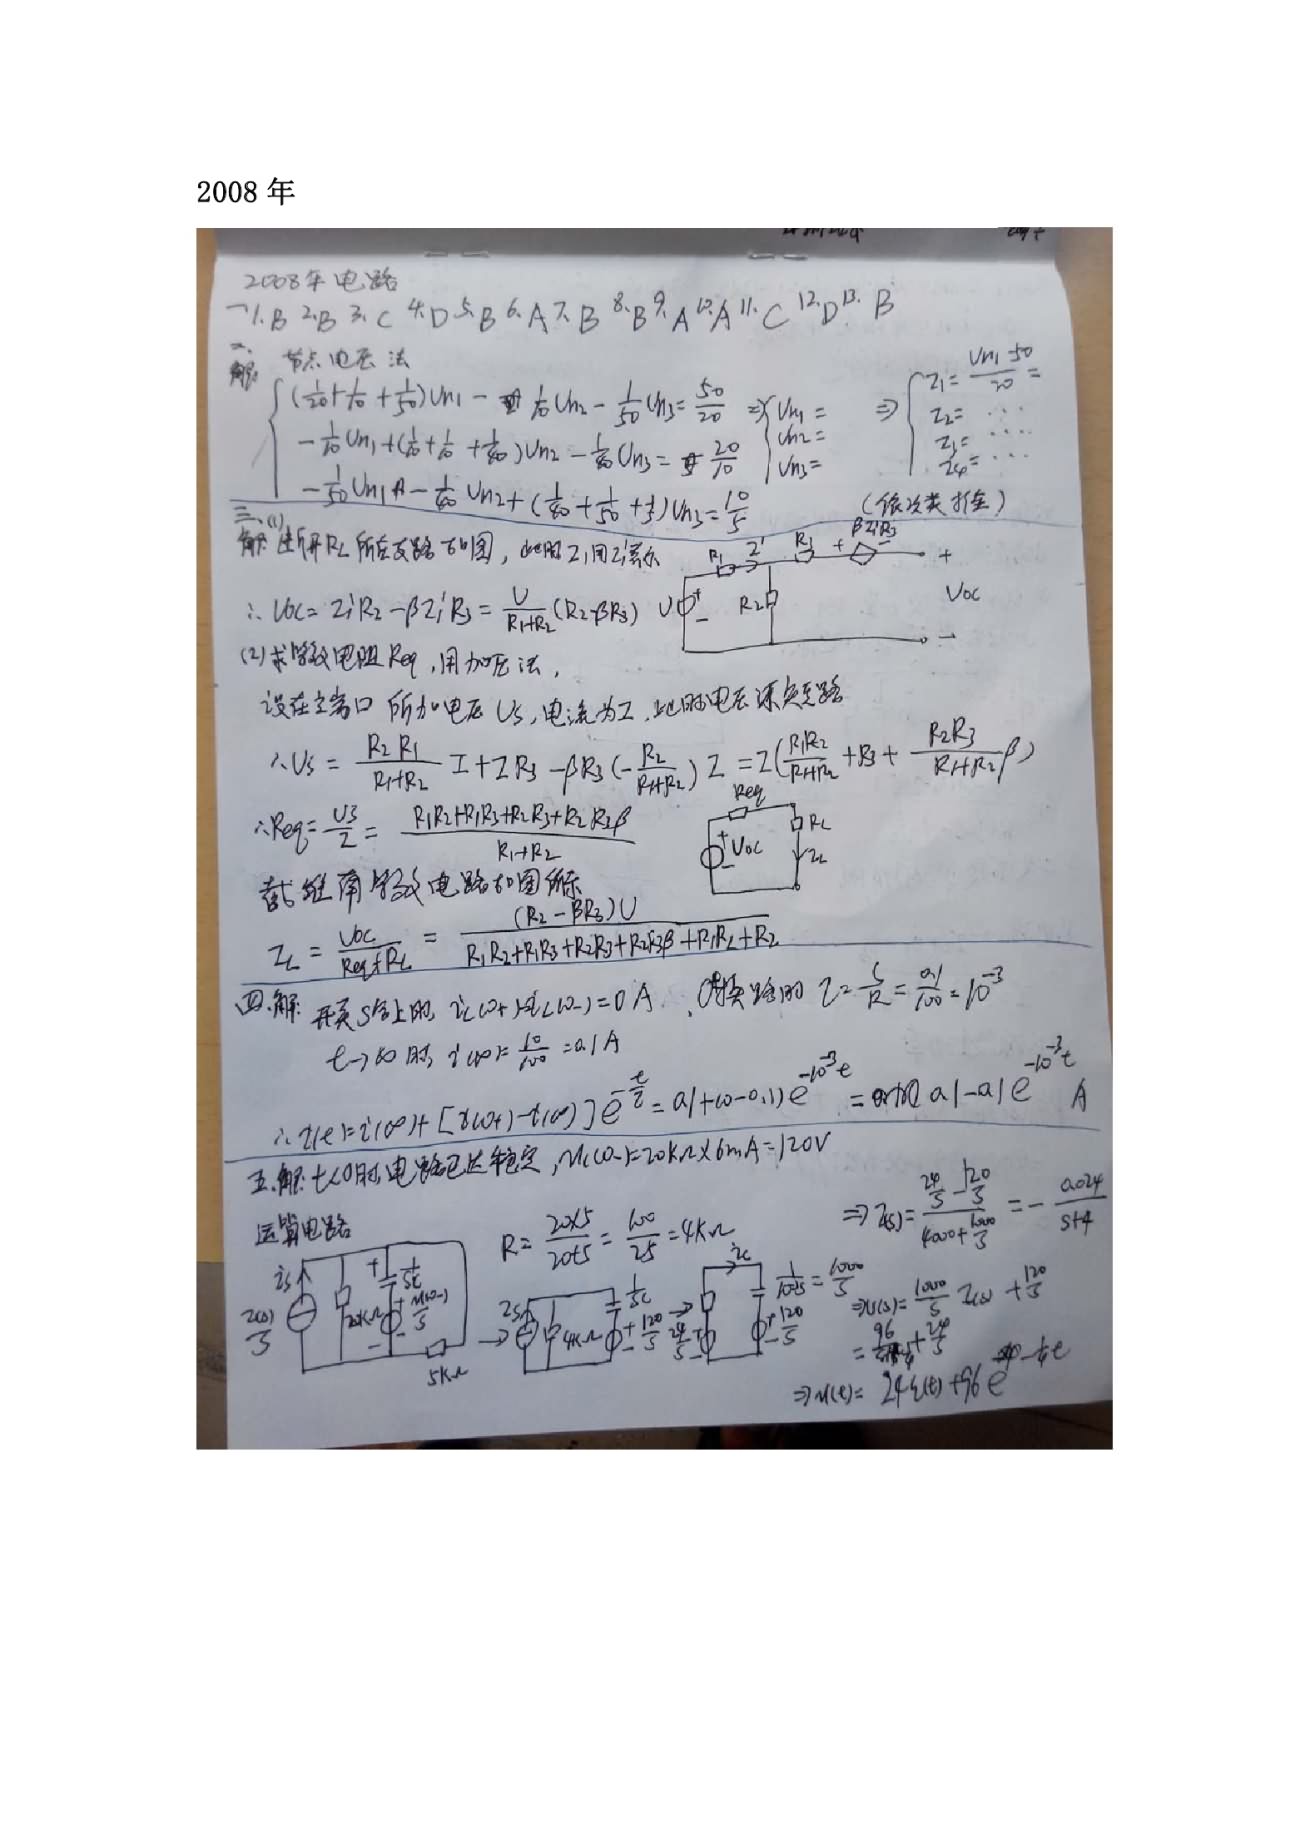 2008 年
2008年电路
一1.B 2.B 3.C 4.D 5.B 6.A 7.B 8.B 9.A 10.A 11.C 12.D 13.B
二、
解: 节点电压法
(1/20+1/10+1/50)Un1 - 1/10 Un2 - 1/50 Un3 = 50/20 ⇒ Un1 = ⇒ I1 = Un1-50/20 =
-1/10 Un1+(1/10+1/10+1/40)Un2 - 1/40 Un3 = 20/10 Un2 = I2= ...
-1/50 Un1 - 1/40 Un2+(1/40+1/50+1/5)Un3 = 10/5 Un3= I3= ... I4= ...
(依次类推)
三、(1)
解: 断开RL所在支路如图，此时I1用I1'表示
R1 I' R3 + βI1'R3 -
∴ Uoc = I1'R2 - βI1'R3 = U/R1+R2 (R2-βR3)
U + - R2 + Uoc -
(2)求等效电阻Req，用加压法，
设在端口所加电压Us，电流为I，此时电压源短路
∴Us = R2R1/R1+R2 I+IR3 - βR3(-R2/R1+R2)I = I(R1R2/R1+R2 +R3+ R2R3/R1+R2 β)
∴Req = Us/I = R1R2+R1R3+R2R3+R2R3β/R1+R2
Req RL + Uoc - IL
戴维南等效电路如图所示
IL = Uoc/Req+RL = (R2-βR3)U/R1R2+R1R3+R2R3+R2R3β+R1RL+R2
四.解: 开关S合上时, iL(0+)=iL(0-)=0A. 换路时 τ= L/R = 0.1/100 = 10^-3
t→∞时, i(∞)= 10/100 =0.1A
∴i(t)=i(∞)+[i(0+)-i(∞)]e^-t/τ = 0.1+(0-0.1)e^-10^-3t = 0.1-0.1e^-10^-3t A
五.解: t<0时,电路已达稳定, uc(0-)=20kΩ×6mA=120V
运算电路
R= 20×5/20+5 = 100/25 =4KΩ
⇒I(s)= 24/s - 120/s / 4000+1000/s = - 0.024/s+4
is 20KΩ + 1/sC + u(0-)/s - 5KΩ
Is 4KΩ 1/sC + 120/s - 24/s ic 1/100s = 1000/s + 120/s -
⇒U(s)= 1000/s I(s) + 120/s
= 96 + 24/s
⇒u(t)= 24ε(t)+96e^-1/4t